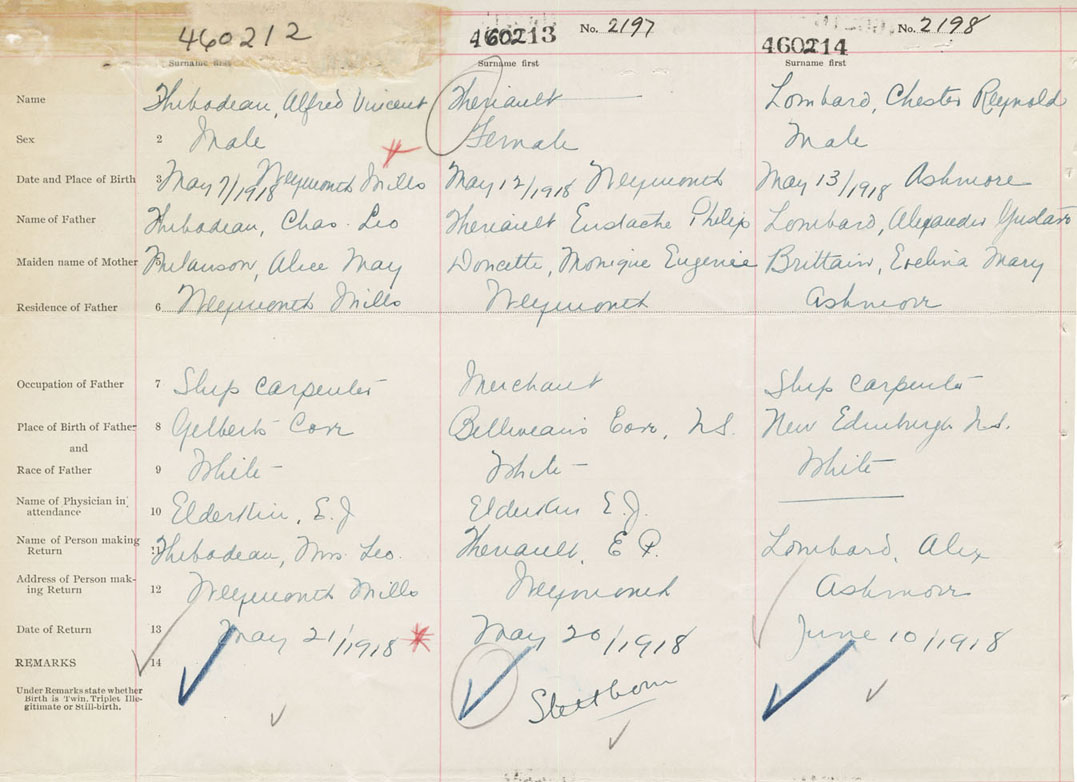 460212 460213 No. 2197 460214 No. 2198
Surname first Surname first Surname first
Name Thibodeau, Alfred Vincent Theriault Lombard, Chester Reynold
Sex 2 Male Female Male
Date and Place of Birth 3 May 7/1918 Weymouth Mills May 12/1918 Weymouth May 13/1918 Ashmore
Name of Father Thibodeau, Chas. Leo Theriault Eustache Philip Lombard, Alexander Gustave
Maiden name of Mother 5 Melanson, Alice May Doucette, Monique Eugenie Brittain, Evelina Mary
Residence of Father 6 Weymouth Mills Weymouth Ashmore
Occupation of Father 7 Ship Carpenter Merchant Ship Carpenter
Place of Birth of Father 8 Gilberts Cove Belliveau's Cove, N.S. New Edinburgh N.S.
and
Race of Father 9 White White White
Name of Physician in
attendance 10 Elderkin, E.J Elderkin E.J.
Name of Person making
Return 11 Thibodeau, Mrs. Leo. Theriault, E P. Lombard, Alex
Address of Person mak-
ing Return 12 Weymouth Mills Weymouth Ashmore
Date of Return 13 May 21/1918 May 20/1918 June 10/1918
REMARKS 14
Under Remarks state whether
Birth is Twin, Triplet Ille-
gitimate or Still-birth. Stillborn